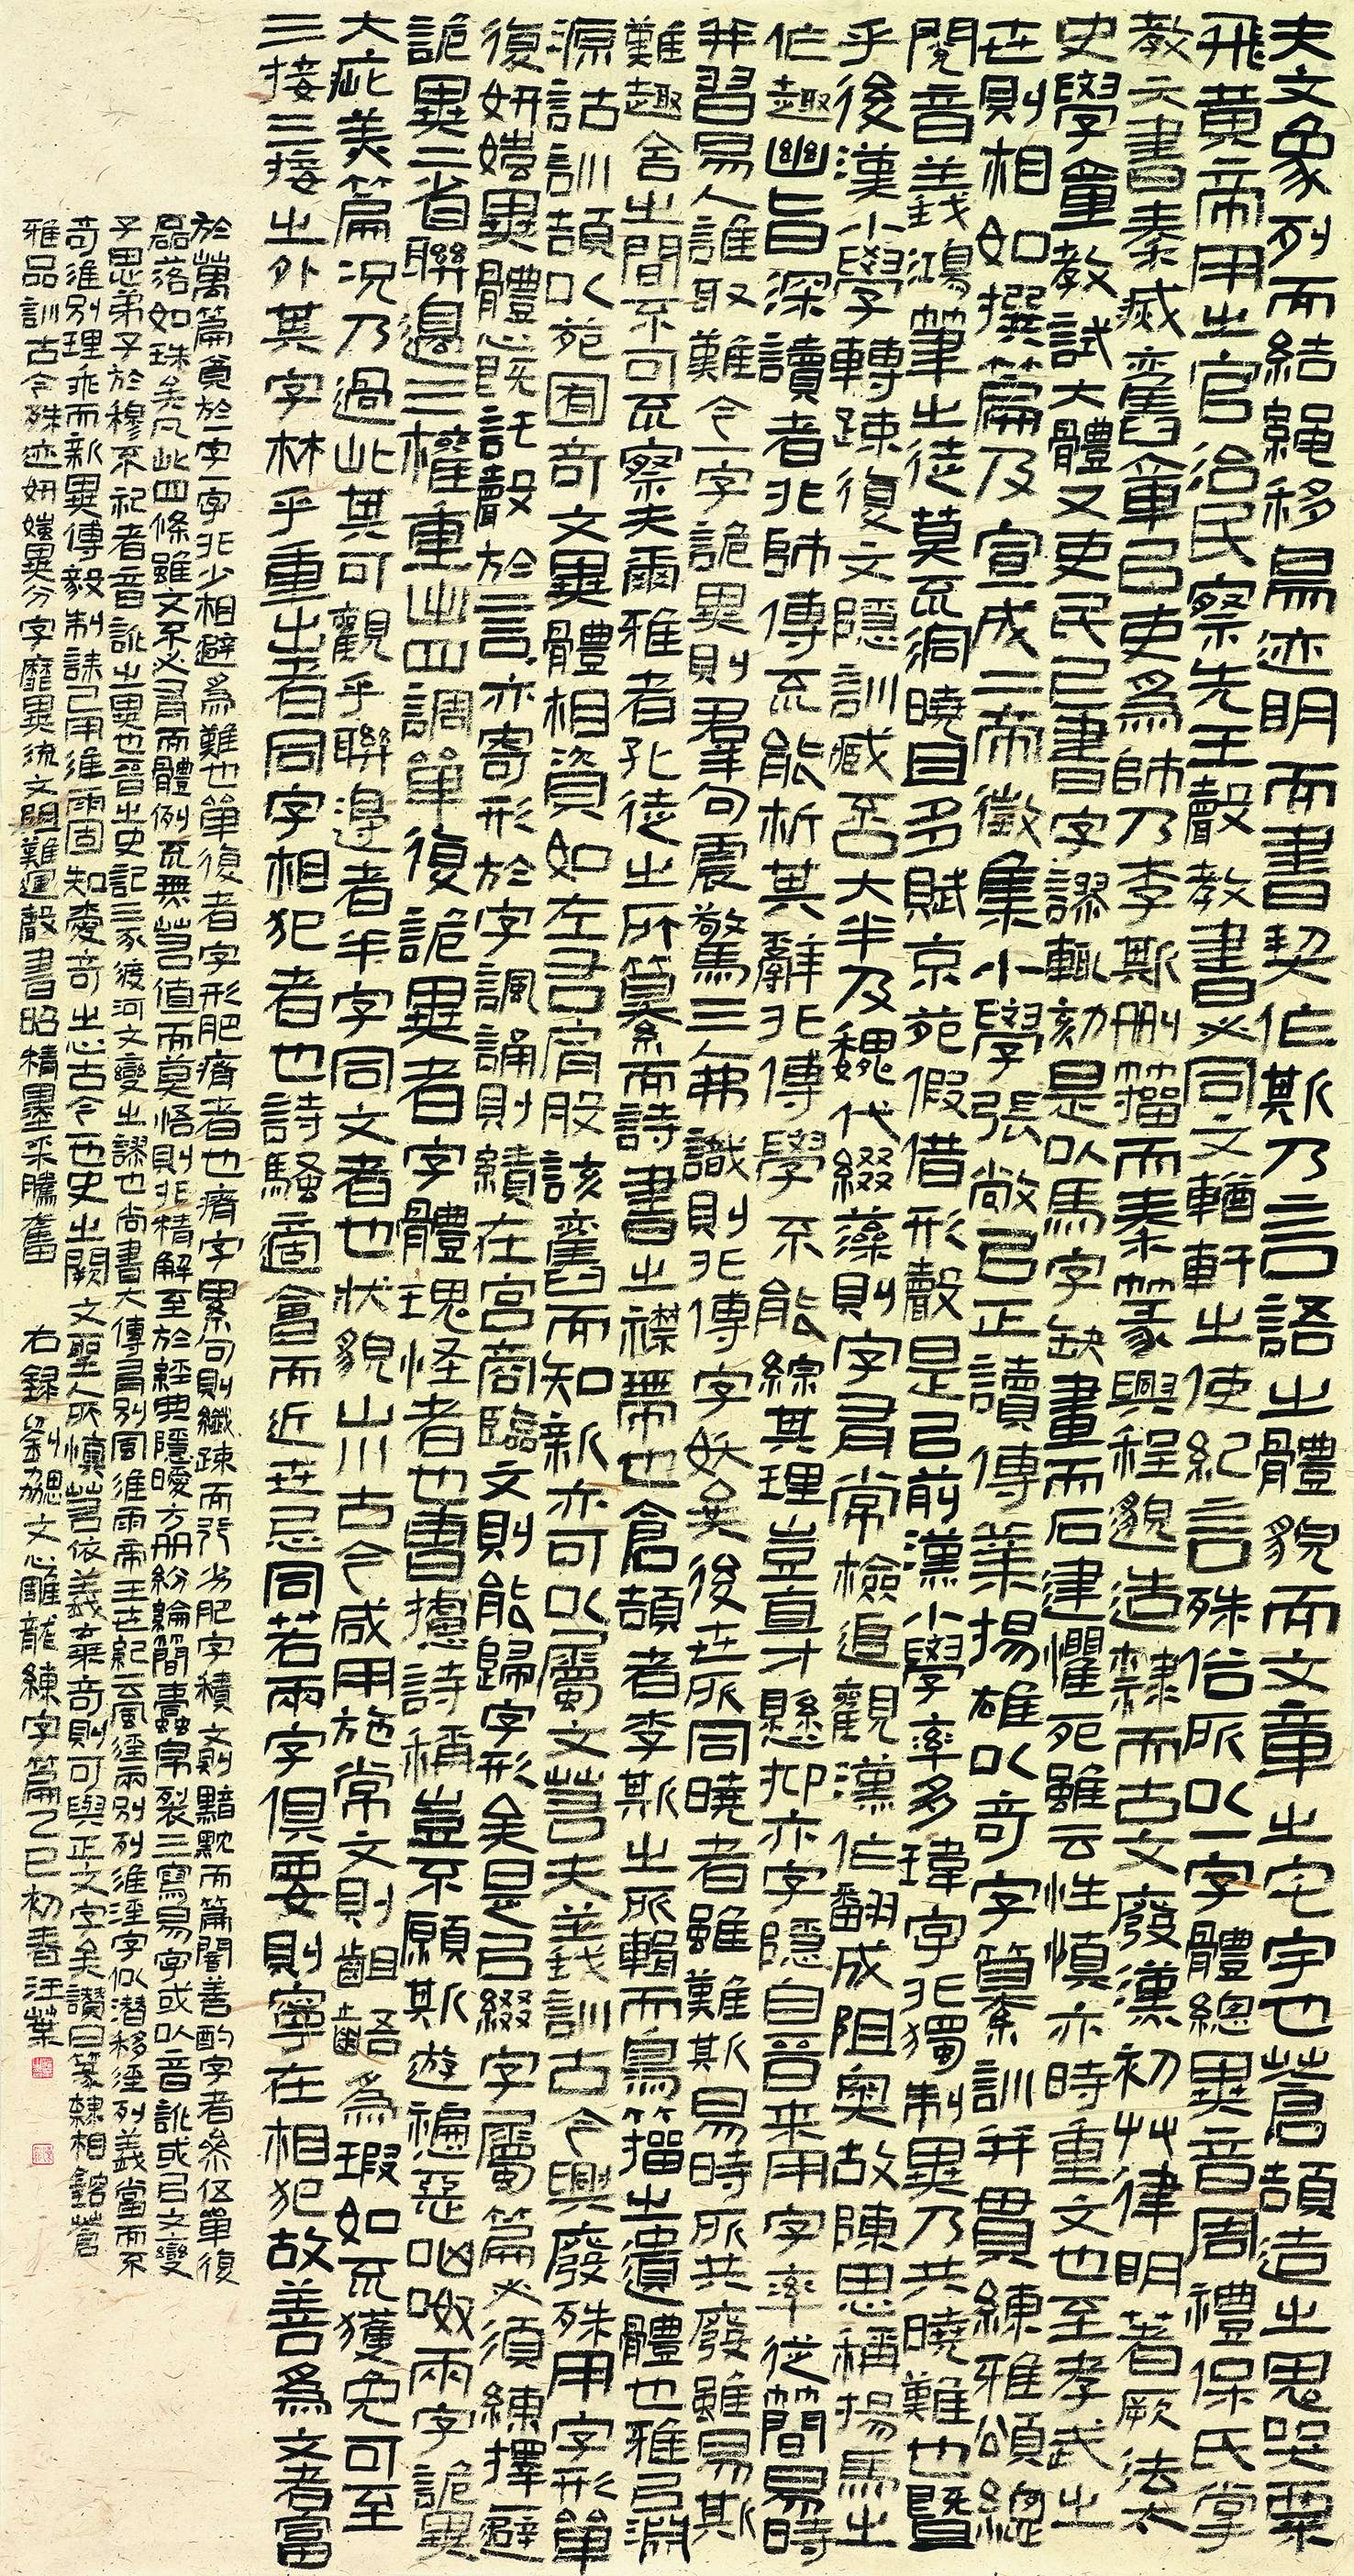 夫文象列而結繩移鳥迹明而書契作斯乃言語之體貌而文章之宅宇也蒼頡造之鬼哭粟
飛黃帝用之官治民察先王聲教書必同文輶軒之使紀言殊俗所以一字體總異音周禮保氏掌
教六書秦滅舊章以吏為師乃李斯刪籀而秦篆興程邈造隸而古文廢漢初艸律明著厥法太
史學童教試六體又吏民上書字謬輒劾是以馬字缺畫而石建懼死雖云性慎亦時重文也至孝武之
世則相如撰篇及宣成二帝徵集小學張敞以正讀傳業揚雄以奇字纂訓并貫練雅頌總
閱音義鴻筆之徒莫不洞曉且多賦京苑假借形聲是以前漢小學率多瑋字非獨制異乃共曉難也暨
乎後漢小學轉疎復文隱訓臧否大半及魏代綴藻則字有常檢追觀漢作翻成阻奧故陳思稱揚馬之
作趣幽旨深讀者非師傳不能析其辭非博學不能綜其理豈直才懸抑亦字隱自晉來用字率從簡易時
并習易人誰取難今一字詭異則羣句震驚三人弗識則非傳字妖矣後世所同曉者雖難斯易時所共廢雖易斯
難趣舍之間不可不察夫爾雅者孔徒之所纂而詩書之襟帶也倉頡者李斯之所輯而鳥籀之遺體也雅以淵
源詁訓頡以苑囿奇文異體相資如左右肩股該舊而知新亦可以屬文若夫義訓古今興廢殊用字形單
復妍媸異體心既託聲於言言亦寄形於字諷誦則績在宮商臨文則能歸字形矣是以綴字屬篇必須練擇一避
詭異二省聯邊三權重出四調單復詭異者字體瑰怪者也曹攄詩稱豈不願斯遊褊惡㕼呶兩字詭異
大疵美篇況乃過此其可觀乎聯邊者半字同文者也狀貌山川古今咸用施常文則齟齬為瑕如不獲免可至
三接三接之外其字林乎重出者同字相犯者也詩騷適會而近世忌同若兩字俱要則寧在相犯故善為文者富
於萬篇貧於一字一字非少相避為難也單復者字形肥瘠者也瘠字累句則纖疎而行劣肥字積文則黯黕而篇闇善酌字者參伍單復
磊落如珠矣凡此四條雖文不必有而體例不無若值而莫悟則非精解至於經典隱曖方冊紛綸簡蠹帛裂三寫易字或以音訛或以文變
子思弟子於穆不祀者音訛之異也晉之史記三豕渡河文變之謬也尚書大傳有別風淮雨帝王世紀云列風淫雨別列淮淫字似潛移淫列義當而不
奇淮別理乖而新異傅毅制誄已用淮雨固知愛奇之心古今一也史之闕文聖人所慎若依義棄奇則可與正文字矣讚曰篆隸相鎔蒼
雅品訓古今殊迹妍媸異分字靡異流文阻難運聲畫昭精墨采騰奮 右錄劉勰文心雕龍練字篇乙巳初春汪葉